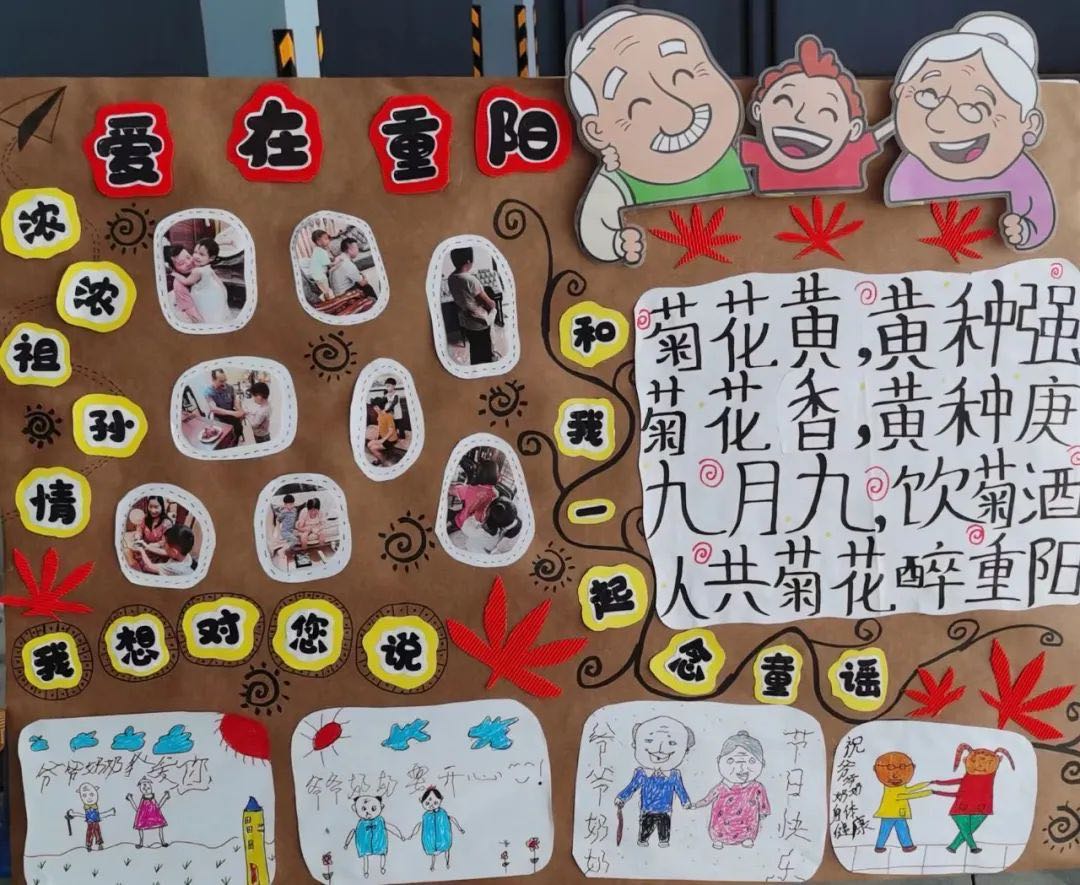 爱在重阳
浓浓祖孙情
和我一起念童谣
菊花黄,黄种强
菊花香,黄种庚
九月九,饮菊酒
人共菊花醉重阳
我想对您说
爷爷奶奶我爱您
爷爷奶奶要开心!
爷爷奶奶
节日快乐
祝
爷爷
奶奶
身体
健康